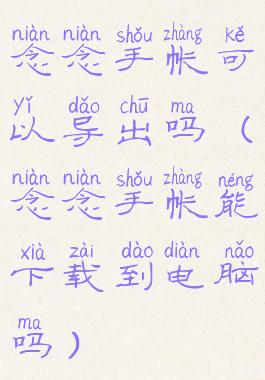 niàn niàn shǒu zhàng kě
念念手帐可
yǐ dǎo chū ma
以导出吗（
niàn niàn shǒu zhàng néng
念念手帐能
xià zài dào diàn nǎo
下载到电脑
ma
吗）